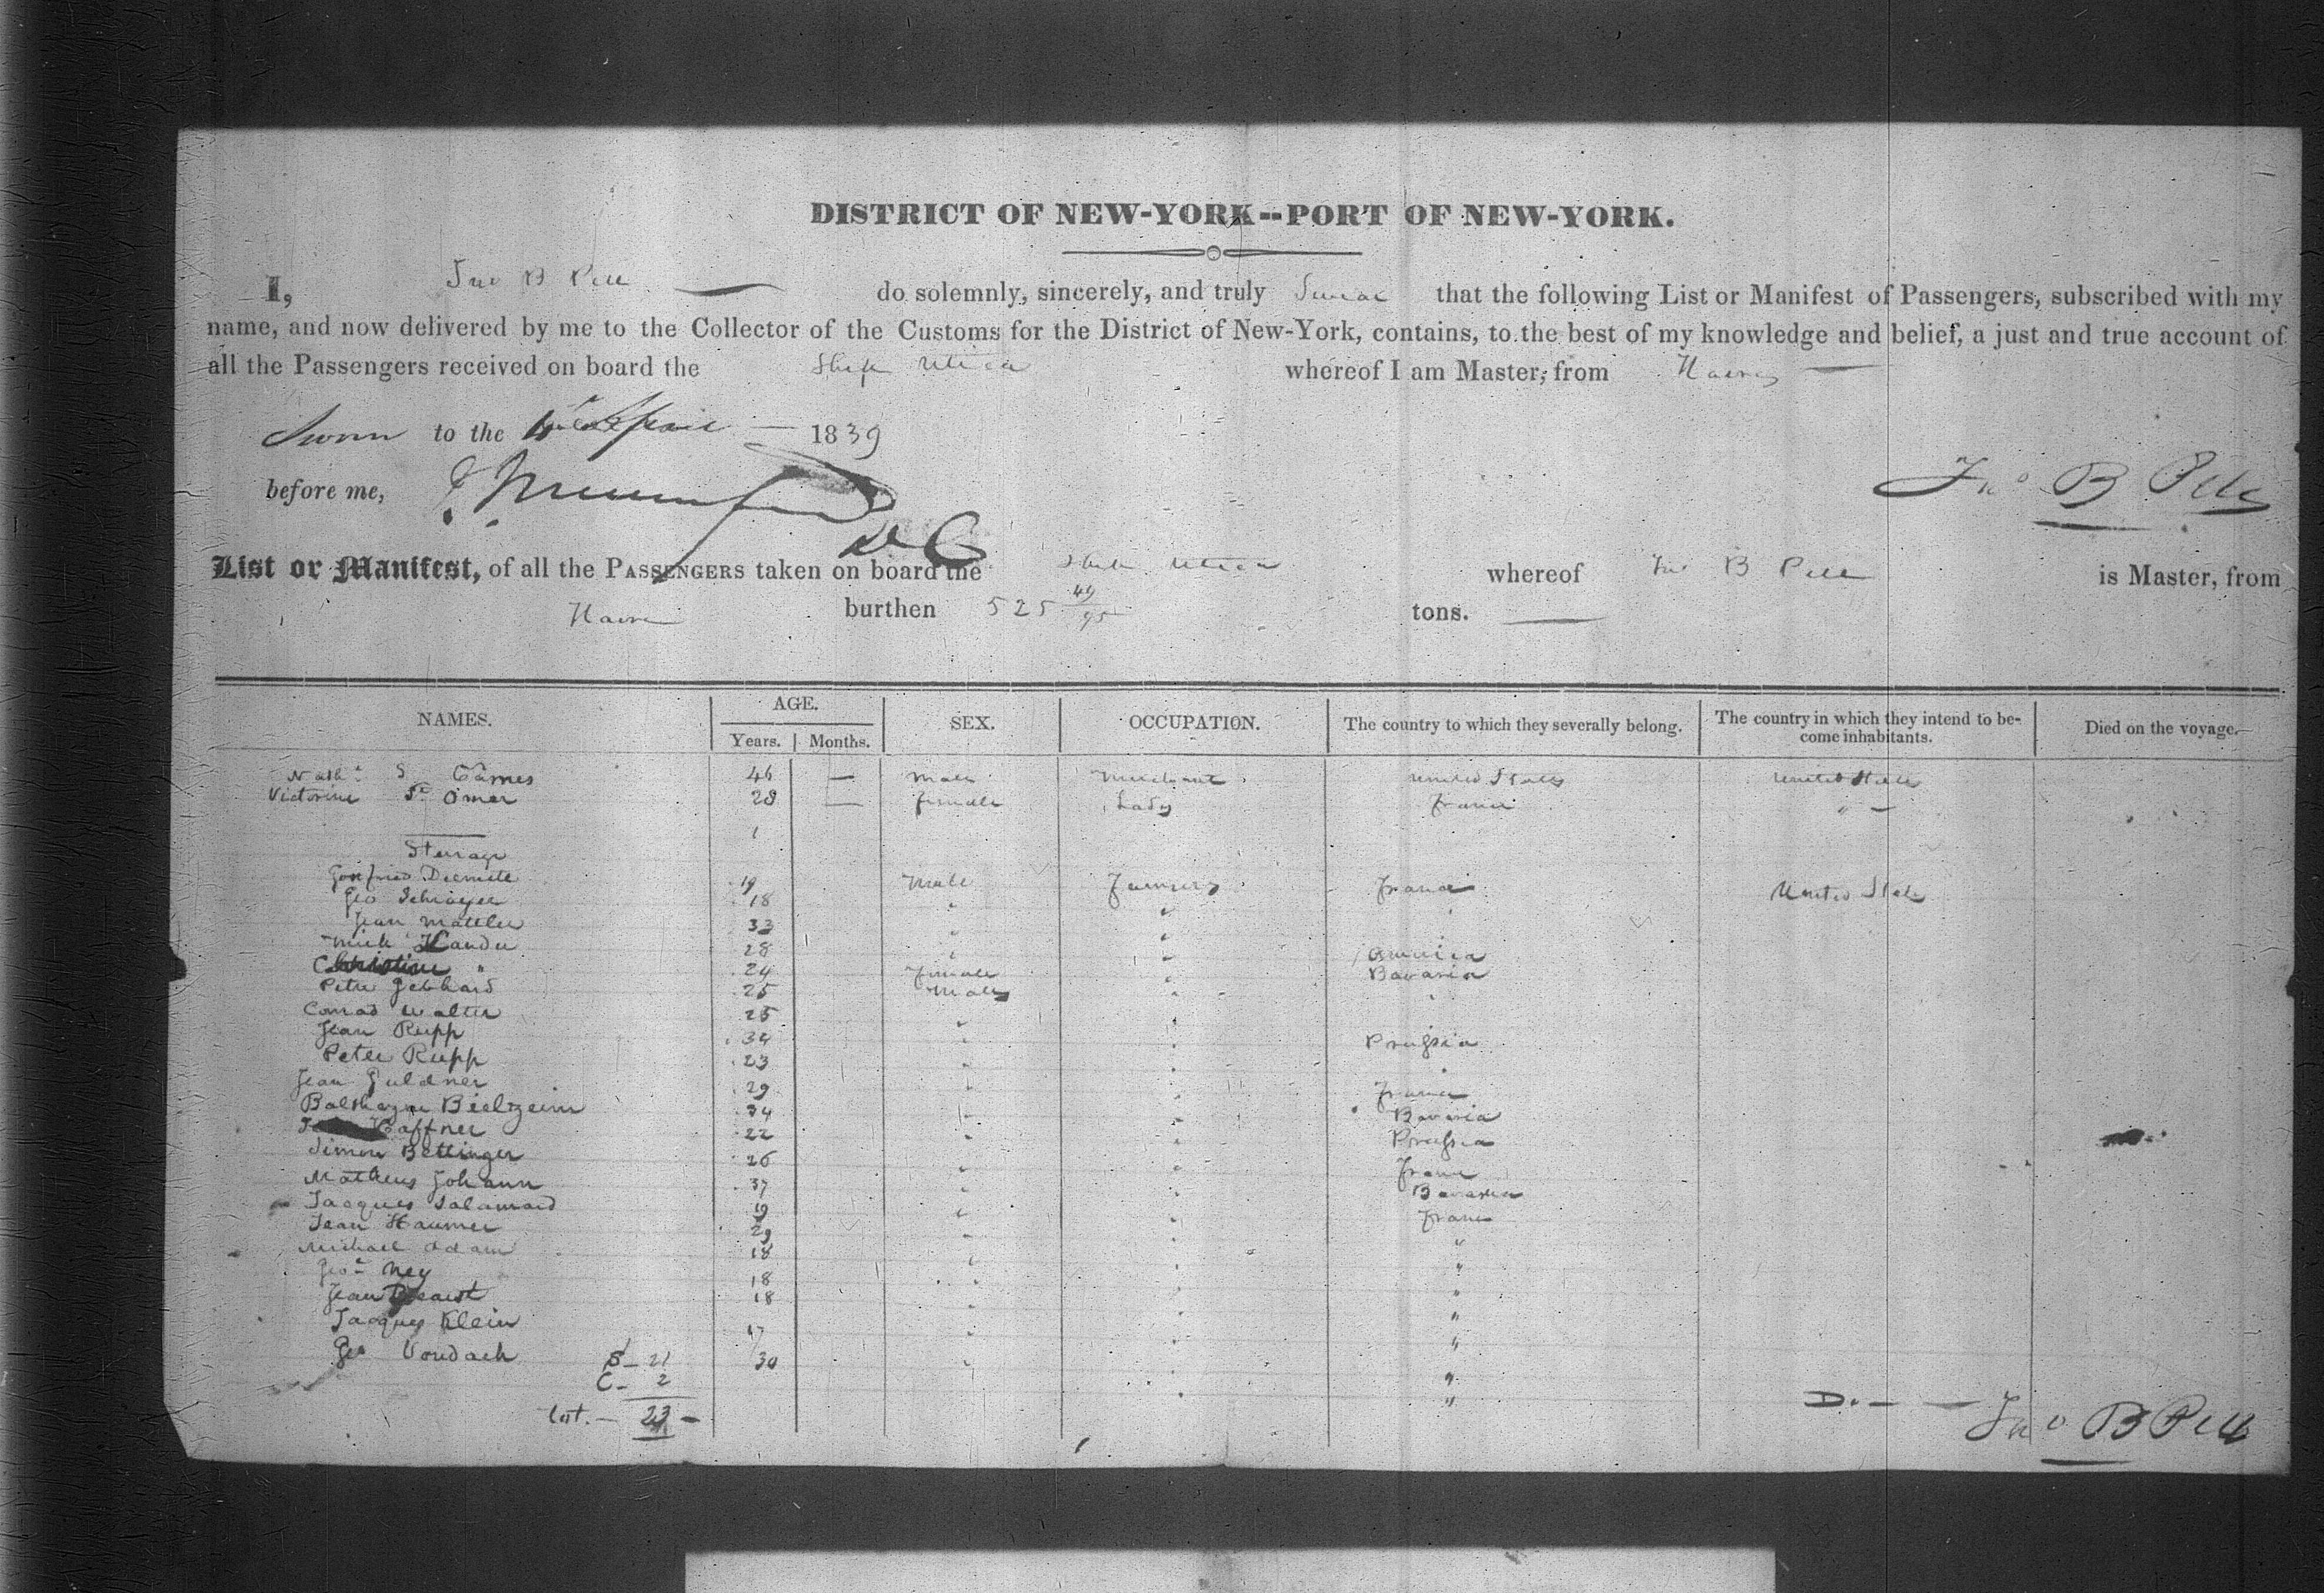 DISTRICT OF NEW-YORK--PORT OF NEW-YORK.
I, Jno B Pell do solemnly, sincerely, and truly Swear that the following List or Manifest of Passengers, subscribed with my
name, and now delivered by me to the Collector of the Customs for the District of New-York, contains, to the best of my knowledge and belief, a just and true account of
all the Passengers received on board the Ship Utica whereof I am Master, from Havre
Sworn to the April 1839
before me,
Jno B Pell
D C
List or Manifest, of all the PASSENGERS taken on board the Ship Utica whereof Jno B Pell is Master, from
Havre burthen 525 49/95 tons.
NAMES. AGE. Years. Months. SEX. OCCUPATION. The country to which they severally belong. The country in which they intend to become inhabitants. Died on the voyage.
46 — Male Merchant United States United States
Victorine St Omer 28 — female Lady France " —
Steerage
19 Male Farmers France United States
Geo 18 " "
Jean 33 " "
Mich 28 " " America
Christine " 24 Female " Bavaria
Peter Gebhard 25 Male " "
Conrad Walter 25 " "
Jean Rupp 34 " " Prussia
Peter Rupp 23 " " "
Jean Guldner 29 " " France
34 " " Bavaria
Haffner 22 " " Prussia
Simon Bettinger 26 " " France
Matheus Johann 37 " " Bavaria
Jacques 19 " " France
Jean 29 " " "
Michael Adam 18 " " "
Geo Ney 18 " " "
Jean 18 " " "
Jacques Klein 17 " " "
Geo 30 " " "
S - 21
C - 2
tot. - 23 -
Do — — Jno B Pell